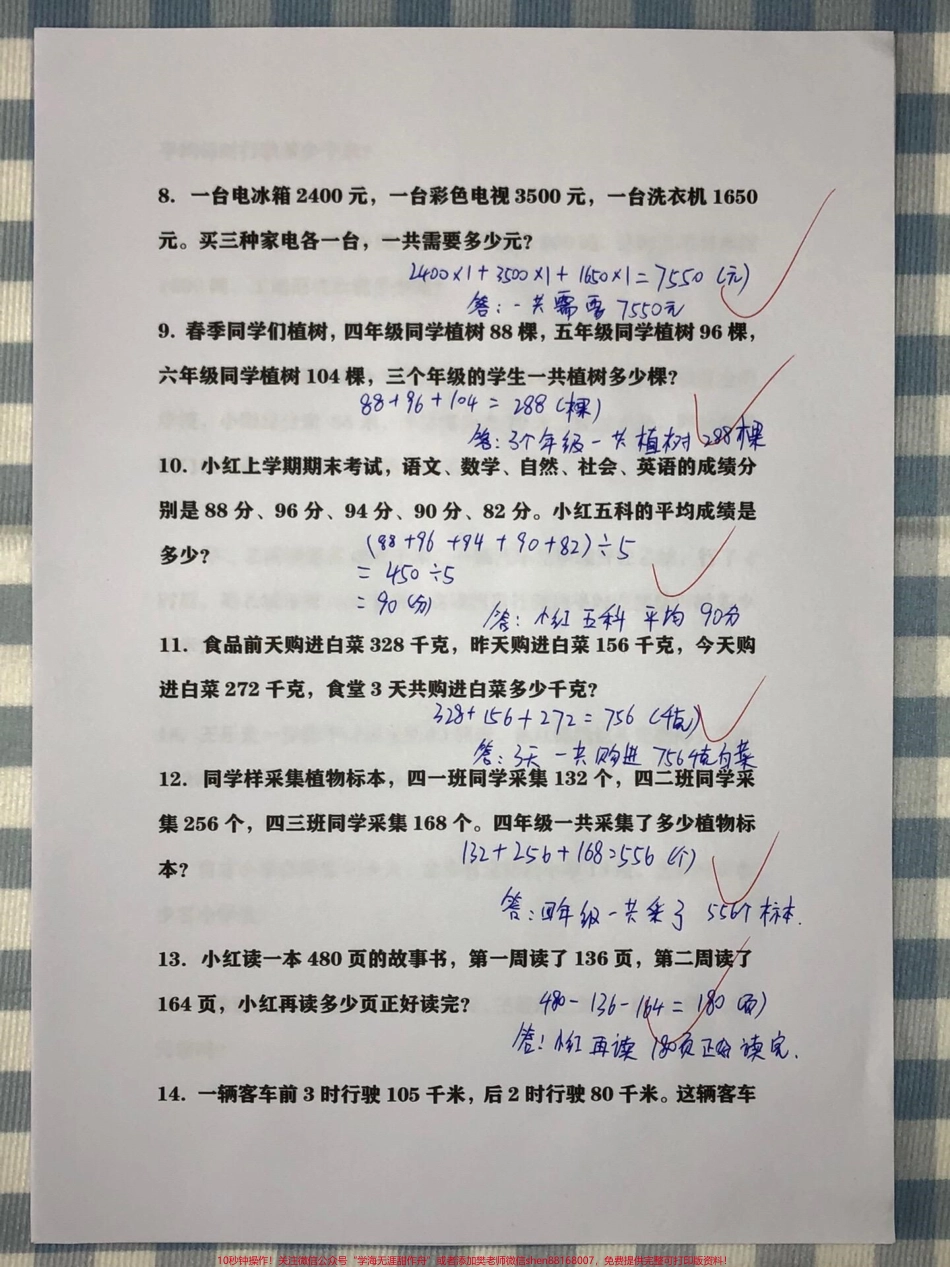 8. 一台电冰箱 2400 元，一台彩色电视 3500 元，一台洗衣机 1650
元。买三种家电各一台，一共需要多少元？
2400×1+3500×1+1650×1=7550（元）
答：一共需要 7550元
9. 春季同学们植树，四年级同学植树 88 棵，五年级同学植树 96 棵，
六年级同学植树 104 棵，三个年级的学生一共植树多少棵？
88+96+104=288（棵）
答：3个年级一共植树288棵
10. 小红上学期期末考试，语文、数学、自然、社会、英语的成绩分
别是 88 分、96 分、94 分、90 分、82 分。小红五科的平均成绩是
多少？
（88+96+94+90+82）÷5
=450÷5
=90（分）
答：小红五科平均90分
11. 食品前天购进白菜 328 千克，昨天购进白菜 156 千克，今天购
进白菜 272 千克，食堂 3 天共购进白菜多少千克？
328+156+272=756（千克）
答：3天一共购进756千克白菜
12. 同学样采集植物标本，四一班同学采集 132 个，四二班同学采
集 256 个，四三班同学采集 168 个。四年级一共采集了多少植物标
本？
132+256+168=556（个）
答：四年级一共采了556个标本.
13. 小红读一本 480 页的故事书，第一周读了 136 页，第二周读了
164 页，小红再读多少页正好读完？
480-136-164=180（页）
答：小红再读180页正好读完.
14. 一辆客车前 3 时行驶 105 千米，后 2 时行驶 80 千米。这辆客车
10秒钟操作！关注微信公众号“学海无涯甜作舟”或者添加樊老师微信shen88168007，免费提供完整可打印版资料！